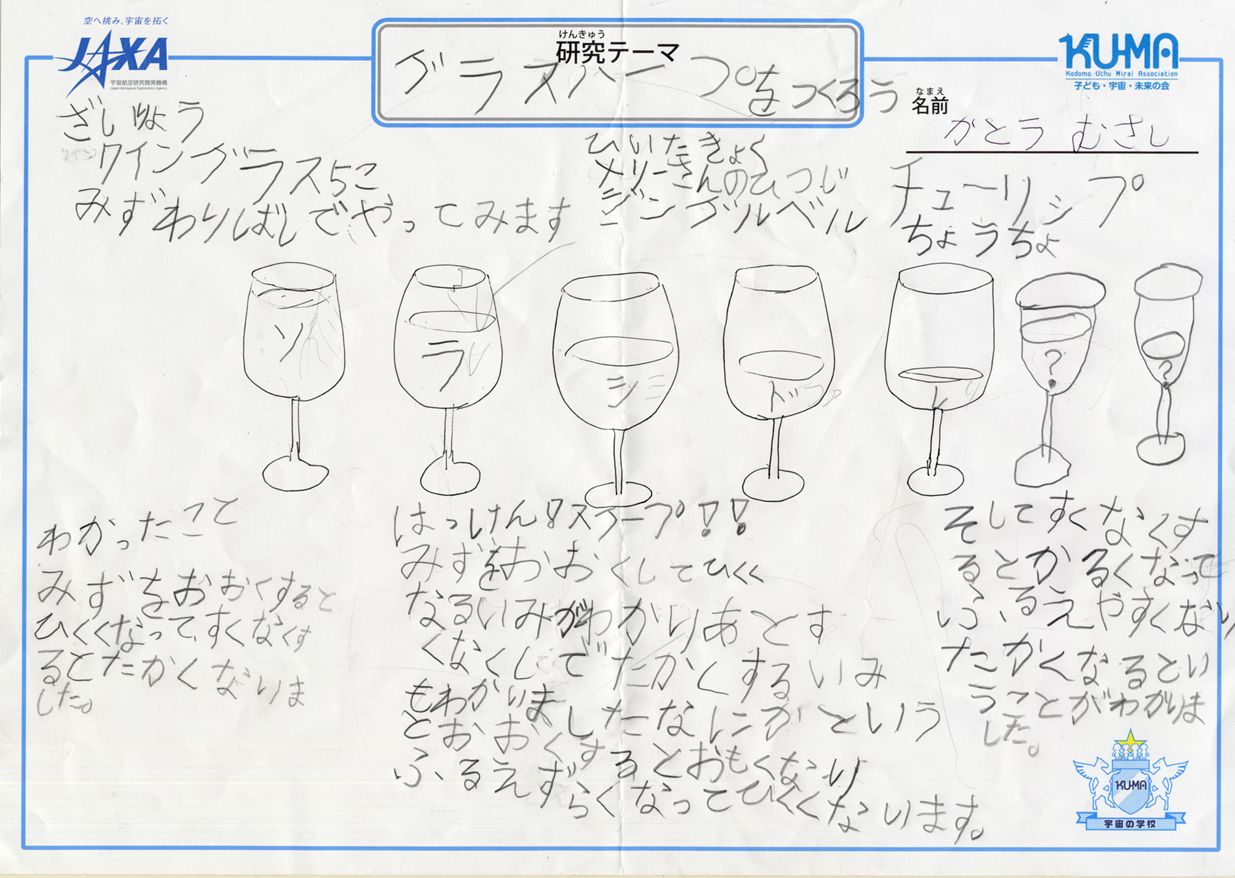 空へ挑み、宇宙を拓く
JAXA
宇宙航空研究開発機構
Japan Aerospace Exploration Agency
けんきゅう
研究テーマ
グラスハープをつくろう
KU-MA
Kodomo・Uchu・Mirai Association
子ども・宇宙・未来の会
なまえ
名前
かとう むさし
ざいりょう
ワイングラス5こ
みずわりばしでやってみます
ひいたきょく
メリーさんのひつじ
ジングルベル
チューリップ
ちょうちょ
ソ
ラ
シ
ド
レ
?
?
わかったこと
みずをおおくすると
ひくくなって、すくなくす
るとたかくなりま
した。
はっけん!スクープ!!
みずをおおくしてひくく
なるいみがわかりあとす
くなくしてたかくするいみ
もわかりま
したなにかという
とおおくするとおもくなり
ふるえずらくなってひくくなります。
そしてすくなくす
るとかるくなって
ふるえやすくなり
たかくなるとい
うことがわかりま
した。
KU-MA
宇宙の学校